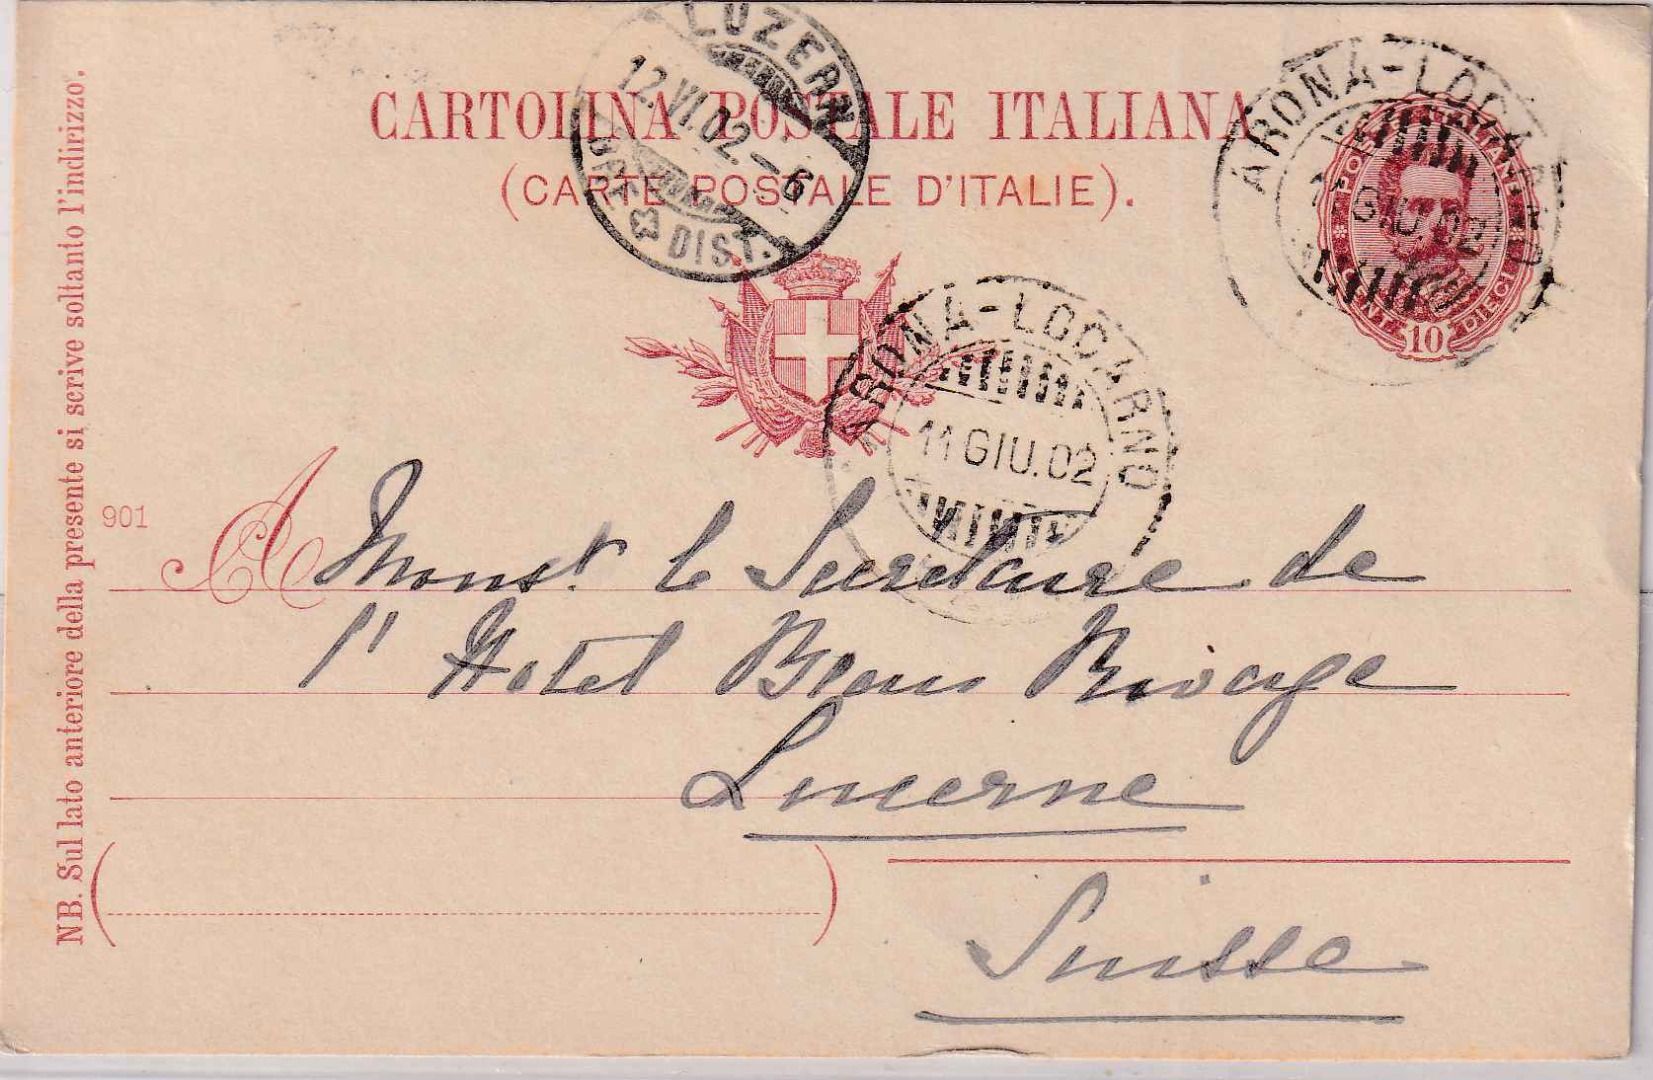 CARTOLINA POSTALE ITALIANA
(CARTE POSTALE D'ITALIE).
LUZERN
12.VI.02.-6
DIST.
ARONA-LOCARNO
11 GIU.02
POSTE ITALIANE
CENT. 10 DIECI
ARONA-LOCARNO
11 GIU.02
NB. Sul lato anteriore della presente si scrive soltanto l'indirizzo.
901
A Monsr. le Secretaire de
l'Hotel Beau Rivage
Lucerne
Suisse